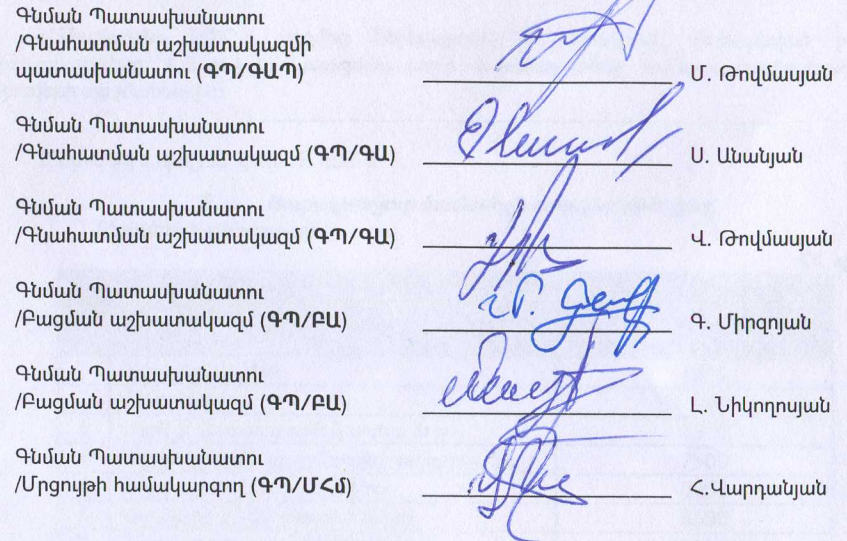 Գնման Պատասխանատու
/Գնահատման աշխատակազմի
պատասխանատու (ԳՊ/ԳԱՊ)
Մ. Թովմասյան
Գնման Պատասխանատու
/Գնահատման աշխատակազմ (ԳՊ/ԳԱ)
Ս. Անանյան
Գնման Պատասխանատու
/Գնահատման աշխատակազմ (ԳՊ/ԳԱ)
Վ. Թովմասյան
Գնման Պատասխանատու
/Բացման աշխատակազմ (ԳՊ/ԲԱ)
Գ. Միրզոյան
Գնման Պատասխանատու
/Բացման աշխատակազմ (ԳՊ/ԲԱ)
Լ. Նիկողոսյան
Գնման Պատասխանատու
/Մրցույթի համակարգող (ԳՊ/ՄՀմ)
Հ.Վարդանյան